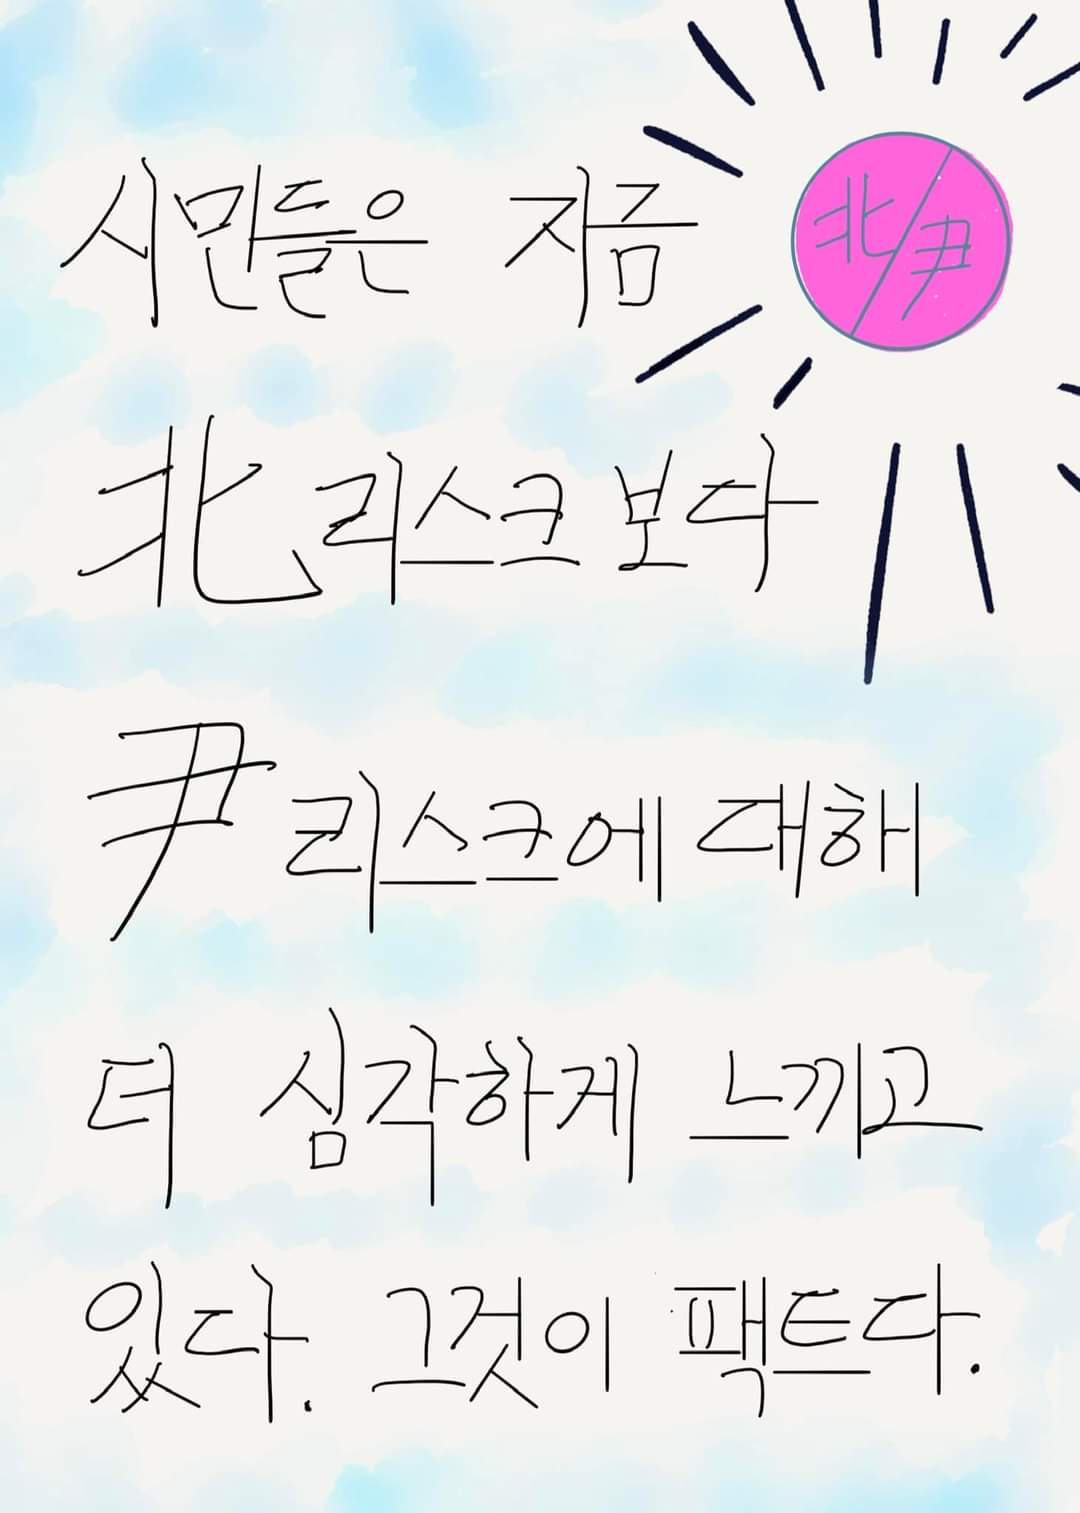 시민들은 지금
北/尹
北리스크보다
尹리스크에 대해
더 심각하게 느끼고
있다. 그것이 팩트다.